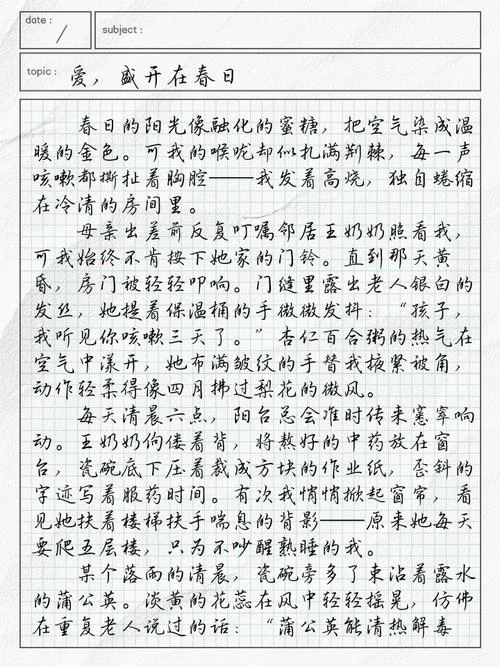 date:
subject:
topic: 爱，盛开在春日
春日的阳光像融化的蜜糖，把空气染成温
暖的金色。可我的喉咙却似扎满荆棘，每一声
咳嗽都撕扯着胸腔——我发着高烧，独自蜷缩
在冷清的房间里。
母亲出差前反复叮嘱邻居王奶奶照看我，
可我始终不肯按下她家的门铃。直到那天黄
昏，房门被轻轻叩响。门缝里露出老人银白的
发丝，她提着保温桶的手微微发抖：“孩子，
我听见你咳嗽三天了。”杏仁百合粥的热气在
空气中漾开，她布满皱纹的手替我掖紧被角，
动作轻柔得像四月拂过梨花的微风。
每天清晨六点，阳台总会准时传来窸窣响
动。王奶奶佝偻着背，将熬好的中药放在窗
台，瓷碗底下压着裁成方块的作业纸，歪斜的
字迹写着服药时间。有次我悄悄掀起窗帘，看
见她扶着楼梯扶手喘息的背影——原来她每天
要爬五层楼，只为不吵醒熟睡的我。
某个落雨的清晨，瓷碗旁多了束沾着露水
的蒲公英。淡黄的花蕊在风中轻轻摇晃，仿佛
在重复老人说过的话：“蒲公英能清热解毒